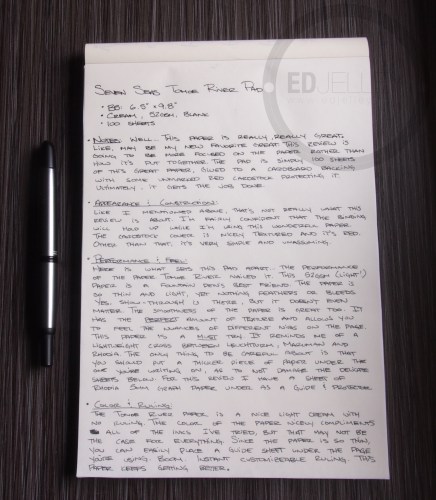 EDJELL
SEVEN SEAS TOMOE RIVER PAD
• B5: 6.9" x 9.8"
• CREAM, 52GSM, BLANK
• 100 SHEETS
• NOTES: WELL... THIS PAPER IS REALLY, REALLY GREAT.
LIKE, MAY BE MY NEW FAVORITE GREAT. THIS REVIEW IS
GOING TO BE MORE FOCUSED ON THE PAPER RATHER THAN
HOW IT'S PUT TOGETHER. THE PAD IS SIMPLY 100 SHEETS
OF THIS GREAT PAPER, GLUED TO A CARDBOARD BACKING
WITH SOME UNPLANNED RED CARDSTOCK PROTECTING IT.
ULTIMATELY, IT GETS THE JOB DONE.
• APPEARANCE & CONSTRUCTION:
LIKE I MENTIONED ABOVE, THAT'S NOT REALLY WHAT THIS
REVIEW IS ABOUT. I'M FAIRLY CONFIDENT THAT THE BINDING
WILL HOLD UP WHILE I'M USING THIS WONDERFUL PAPER.
THE CARDSTOCK COVER IS NICELY TEXTURED AND IT'S RED.
OTHER THAN THAT, IT'S VERY SIMPLE AND UNASSUMING.
• PERFORMANCE & FEEL:
HERE IS WHAT SETS THIS PAD APART. THE PERFORMANCE
OF THE PAPER. TOMOE RIVER NAILED IT. THIS 52GSM (LIGHT!)
PAPER IS A FOUNTAIN PEN'S BEST FRIEND. THE PAPER IS
SO THIN AND LIGHT, YET NOTHING FEATHERS OR BLEEDS.
YES, SHOW-THROUGH IS THERE, BUT IT DOESN'T EVEN
MATTER. THE SMOOTHNESS OF THE PAPER IS GREAT TOO. IT
HAS THE PERFECT AMOUNT OF TEXTURE AND ALLOWS YOU
TO FEEL THE NUANCES OF DIFFERENT NIBS ON THE PAGE.
THIS PAPER IS A MUST TRY. IT REMINDS ME OF A
LIGHTWEIGHT CROSS BETWEEN LEUCHTTURM, MARUMAN AND
RHODIA. THE ONLY THING TO BE CAREFUL ABOUT IS THAT
YOU SHOULD PUT A THICKER PIECE OF PAPER UNDER THE
ONE YOU'RE WRITING ON, AS TO NOT DAMAGE THE DELICATE
SHEETS BELOW. FOR THIS REVIEW I HAVE A SHEET OF
RHODIA 5MM GRAPH PAPER UNDER AS A GUIDE & PROTECTOR.
• COLOR & RULING:
THE TOMOE RIVER PAPER IS A NICE LIGHT CREAM WITH
NO RULING. THE COLOR OF THE PAPER NICELY COMPLIMENTS
ALL OF THE INKS I'VE TRIED, BUT THAT MAY NOT BE
THE CASE FOR EVERYTHING. SINCE THE PAPER IS SO THIN,
YOU CAN EASILY PLACE A GUIDE SHEET UNDER THE PAGE
YOU'RE USING. BOOM. INSTANT CUSTOMIZEABLE RULING. THIS
PAPER KEEPS GETTING BETTER.